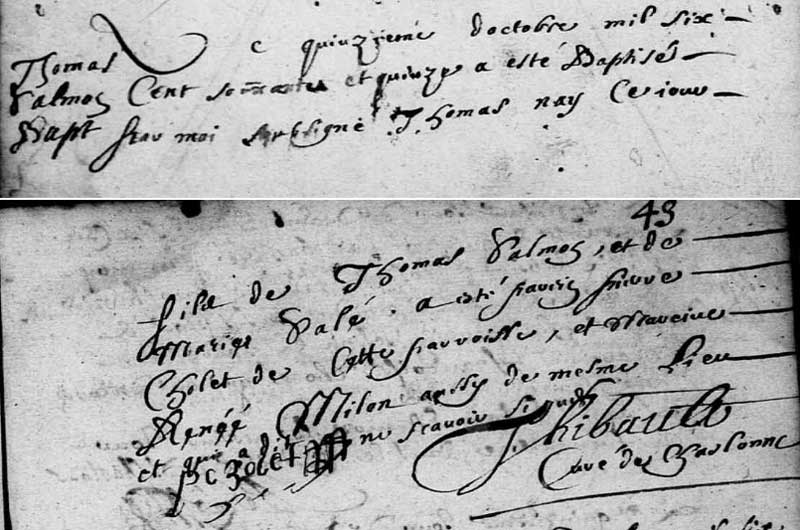 Thomas
Valmos
Bapt
Le quinziesme doctobre mil six
Cent soixante et quinze a esté Baptisé
par moi soubsigné Thomas nay ce jour
43
fils de Thomas Valmos, et de
Marie Valé. a esté parein pierre
Cholet de Cette parroisse, et Mareine
Renéé Milon aussy de mesme Lieu
et qui a dit ne scavoir signer
p c zolet
Thibault
Curé de